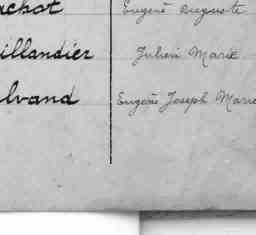 achot Eugène Auguste
illandier Julien Marie
lvand Eugène Joseph Marie